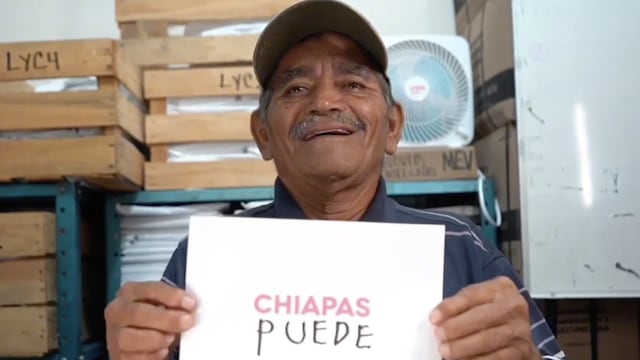 LYC4
LYC
MEV
CHIAPAS
PUEDE